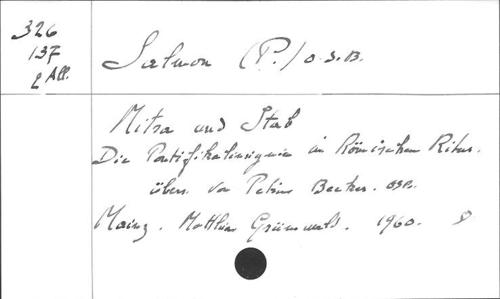 326
137
2 All.
Salmon (P.) O.S.B.
Mitra und Stab
Die Pontifikalinsignien im Römischen Ritus.
übers. von Petrus Becker. OSB.
Mainz. Matthias Grünewald. 1960.